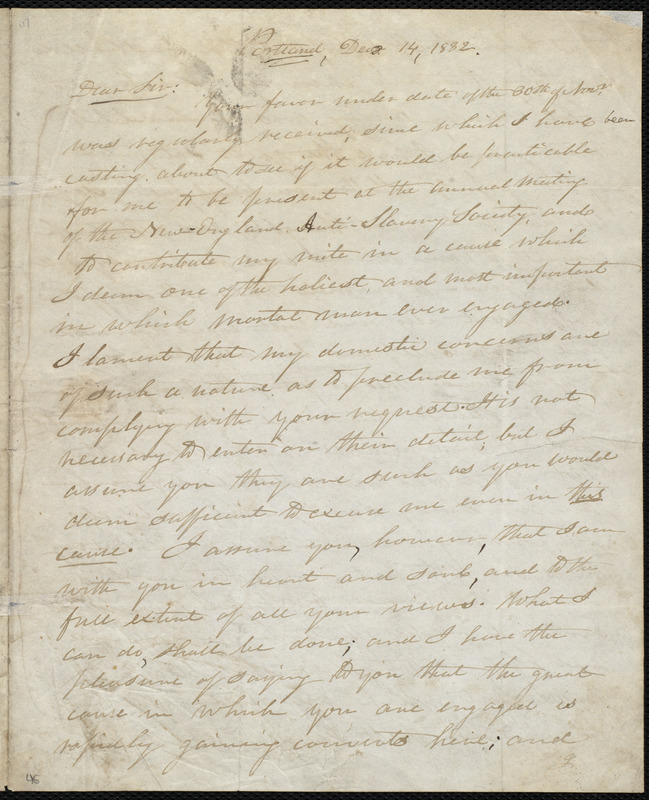 Portland, Dec. 14, 1832.
Dear Sir:
Your favor under date of the 30th of Novr
was regularly received, since which I have been
casting about to see if it would be practicable
for me to be present at the annual meeting
of the New-England Anti-Slavery Society, and
to contribute my mite in a cause which
I deem one of the holiest, and most important
in which mortal man ever engaged.
I lament that my domestic concerns are
of such a nature as to preclude me from
complying with your request. It is not
necessary to enter on their detail, but I
assure you they are such as you would
deem sufficient to excuse me even in this
cause. I assure you, however, that I am
with you in heart and soul, and to the
full extent of all your views. What I
can do, shall be done; and I have the
pleasure of saying to you that the great
cause in which you are engaged is
rapidly gaining converts here; and
46